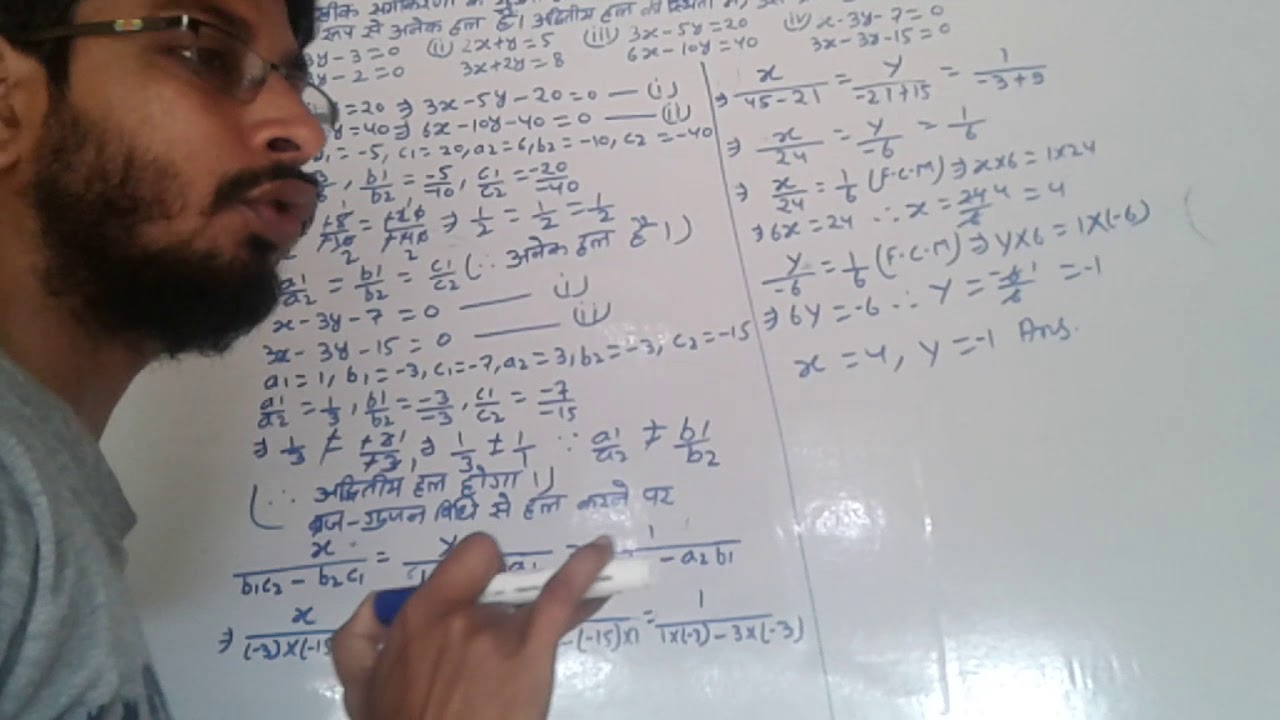 रूप से अनेक हल हैं। अद्वितीय हल की स्थिति में,
3y-3=0 (ii) 2x+y=5 (iii) 3x-5y=20 (iv) x-3y-7=0
y-2=0 3x+2y=8 6x-10y=40 3x-3y-15=0
=20 ⇒ 3x-5y-20=0 — (i)
y=40 ⇒ 6x-10y-40=0 — (ii)
b1=-5, c1=20, a2=6, b2=-10, c2=-40
, b1/b2 = -5/-10, c1/c2 = -20/-40
⇒ 1/2 = 1/2 = 1/2
a1/a2 = b1/b2 = c1/c2 (∵ अनेक हल है।)
x-3y-7=0 — (i)
3x-3y-15=0 — (ii)
a1=1, b1=-3, c1=-7, a2=3, b2=-3, c2=-15
a1/a2 = 1/3, b1/b2 = -3/-3, c1/c2 = -7/-15
⇒ 1/3 ≠ +3/+3, ⇒ 1/3 ≠ 1/1 ∵ a1/a2 ≠ b1/b2
(∴ अद्वितीय हल होगा।)
ब्रज-गुणन विधि से हल करने पर
x/b1c2-b2c1 = y = 1/-a2b1
⇒ x/(-3)×(-15 -(-15)×1 = 1/1×(-3)-3×(-3)
⇒ x/45-21 = y/-21+15 = 1/-3+9
⇒ x/24 = y/-6 = 1/6
⇒ x/24 = 1/6 (F.C.M) ⇒ x×6=1×24
⇒ 6x=24 ∴ x = 24/6 4 = 4
y/-6 = 1/6 (F.C.M) ⇒ y×6=1×(-6)
⇒ 6y=-6 ∴ y = -6/6 1 = -1
x=4, y=-1 Ans.